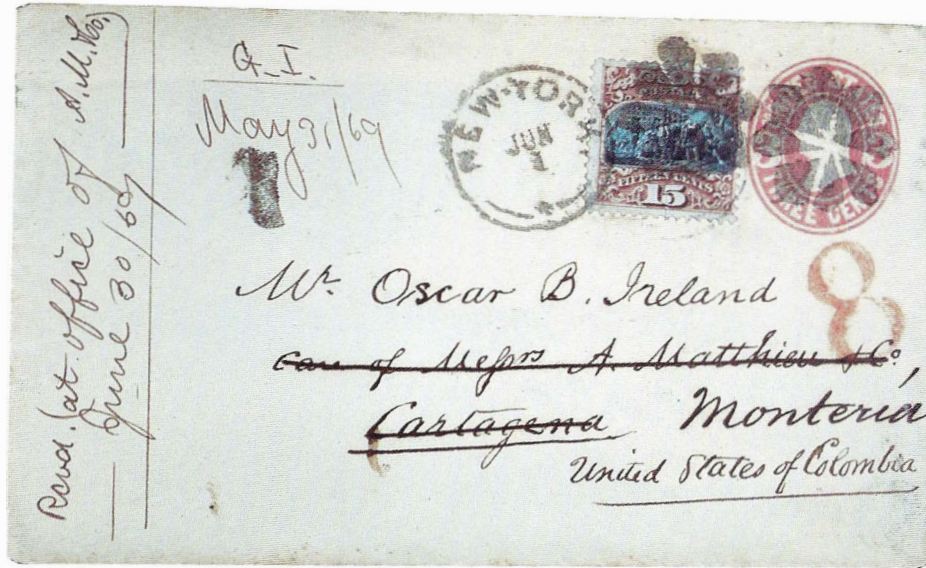 Recvd. at office of A. M. & Co.
June 30/69
G. I.
May 31/69
1
NEW-YORK
JUN
1
FIFTEEN CENTS
15
THREE CENTS
8
Mr. Oscar B. Ireland
Care of Messrs A. Matthieu & Co.,
Cartagena Monteria
United States of Colombia